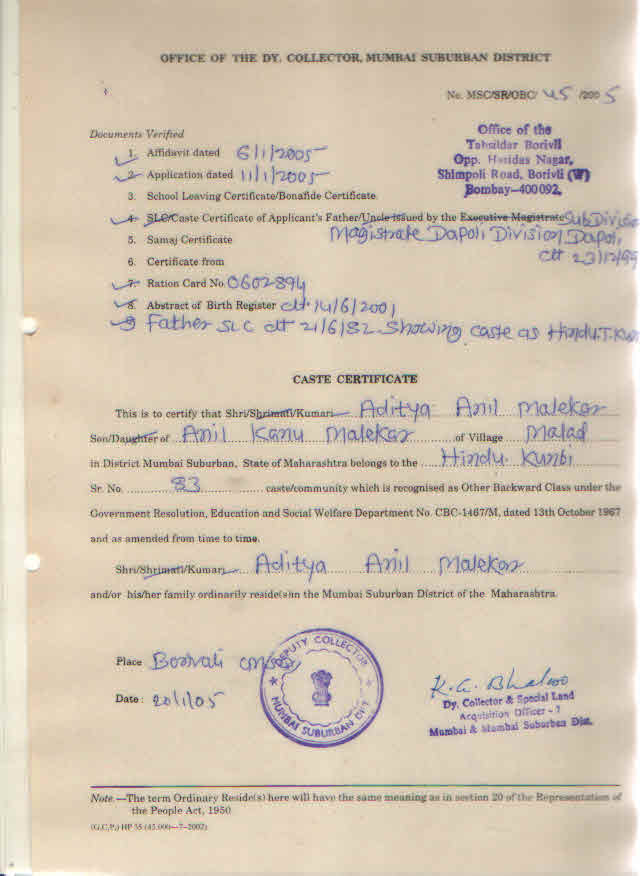 OFFICE OF THE DY. COLLECTOR, MUMBAI SUBURBAN DISTRICT
No. MSC/SR/OBC/ 45 /2005
Documents Verified
Office of the
Tahsildar Borivli
Opp. Haridas Nagar,
Shimpoli Road, Borivli (W)
Bombay-400092.
1. Affidavit dated 6/1/2005
2. Application dated 11/1/2005
3. School Leaving Certificate/Bonafide Certificate
4. SLC/Caste Certificate of Applicant's Father/Uncle issued by the Executive Magistrate Sub Divisio
Magistrate Dapoli Division, Dapoli,
5. Samaj Certificate
dt 23/12/99
6. Certificate from
7. Ration Card No. 0602894
8. Abstract of Birth Register dt. 14/6/2001
9 Father SLC dt 21/6/82 Showing caste as Hindu.T.Kun
CASTE CERTIFICATE
This is to certify that Shri/Shrimati/Kumari Aditya Anil Malekar
Son/Daughter of Anil Kanu Malekar of Village Malad
in District Mumbai Suburban, State of Maharashtra belongs to the Hindu Kunbi
Sr. No. 83 caste/community which is recognised as Other Backward Class under the
Government Resolution, Education and Social Welfare Department No. CBC-1467/M, dated 13th October 1967
and as amended from time to time.
Shri/Shrimati/Kumari Aditya Anil Malekar
and/or his/her family ordinarily reside(s)in the Mumbai Suburban District of the Maharashtra.
Place Borivali
DEPUTY COLLECTOR
MUMBAI SUBURBAN DIST
Date : 20/1/05
K.G. Bhaloo
Dy. Collector & Special Land
Acquisition Officer - 7
Mumbai & Mumbai Suburban Dist.
Note.—The term Ordinary Reside(s) here will have the same meaning as in section 20 of the Representation of
the People Act, 1950
(G.C.P.) HP 35 (45,000—7-2002)